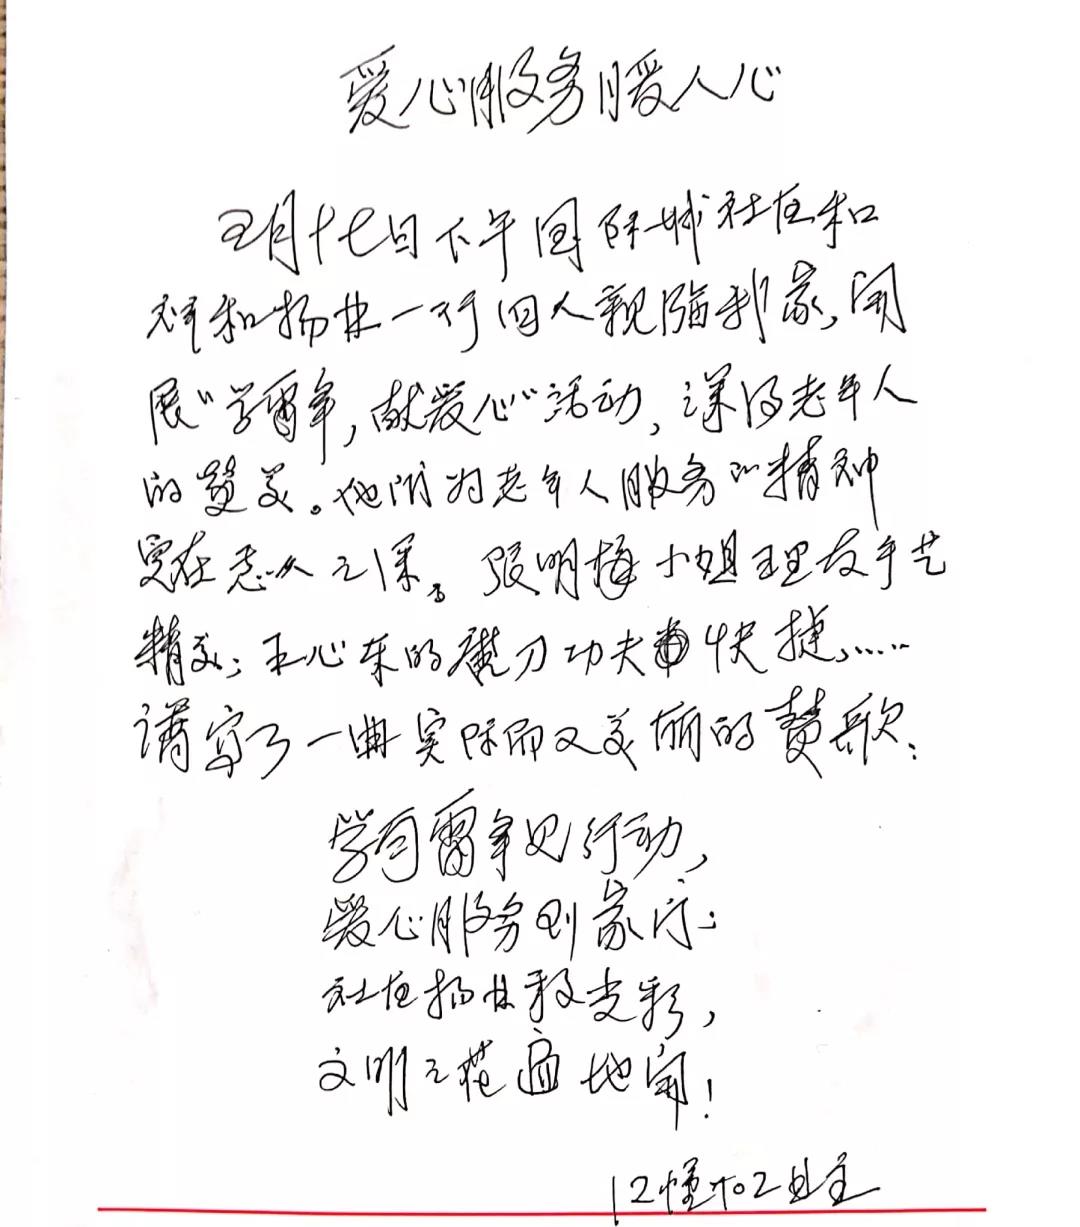 爱心服务暖人心
五月十七日下午国际城社区和
祥和物业一行四人亲临到家,开
展"学雷锋,献爱心"活动,深得老年人
的赞美。他们为老年人服务的精神
实在感人之深。张明梅小姐理发手艺
精美;王心东的磨刀功夫 快捷……
谱写了一曲实际而又美丽的赞歌:
学习雷锋见行动,
爱心服务到家门;
社区物业 支彩,
文明之花遍地开!
12幢702业主